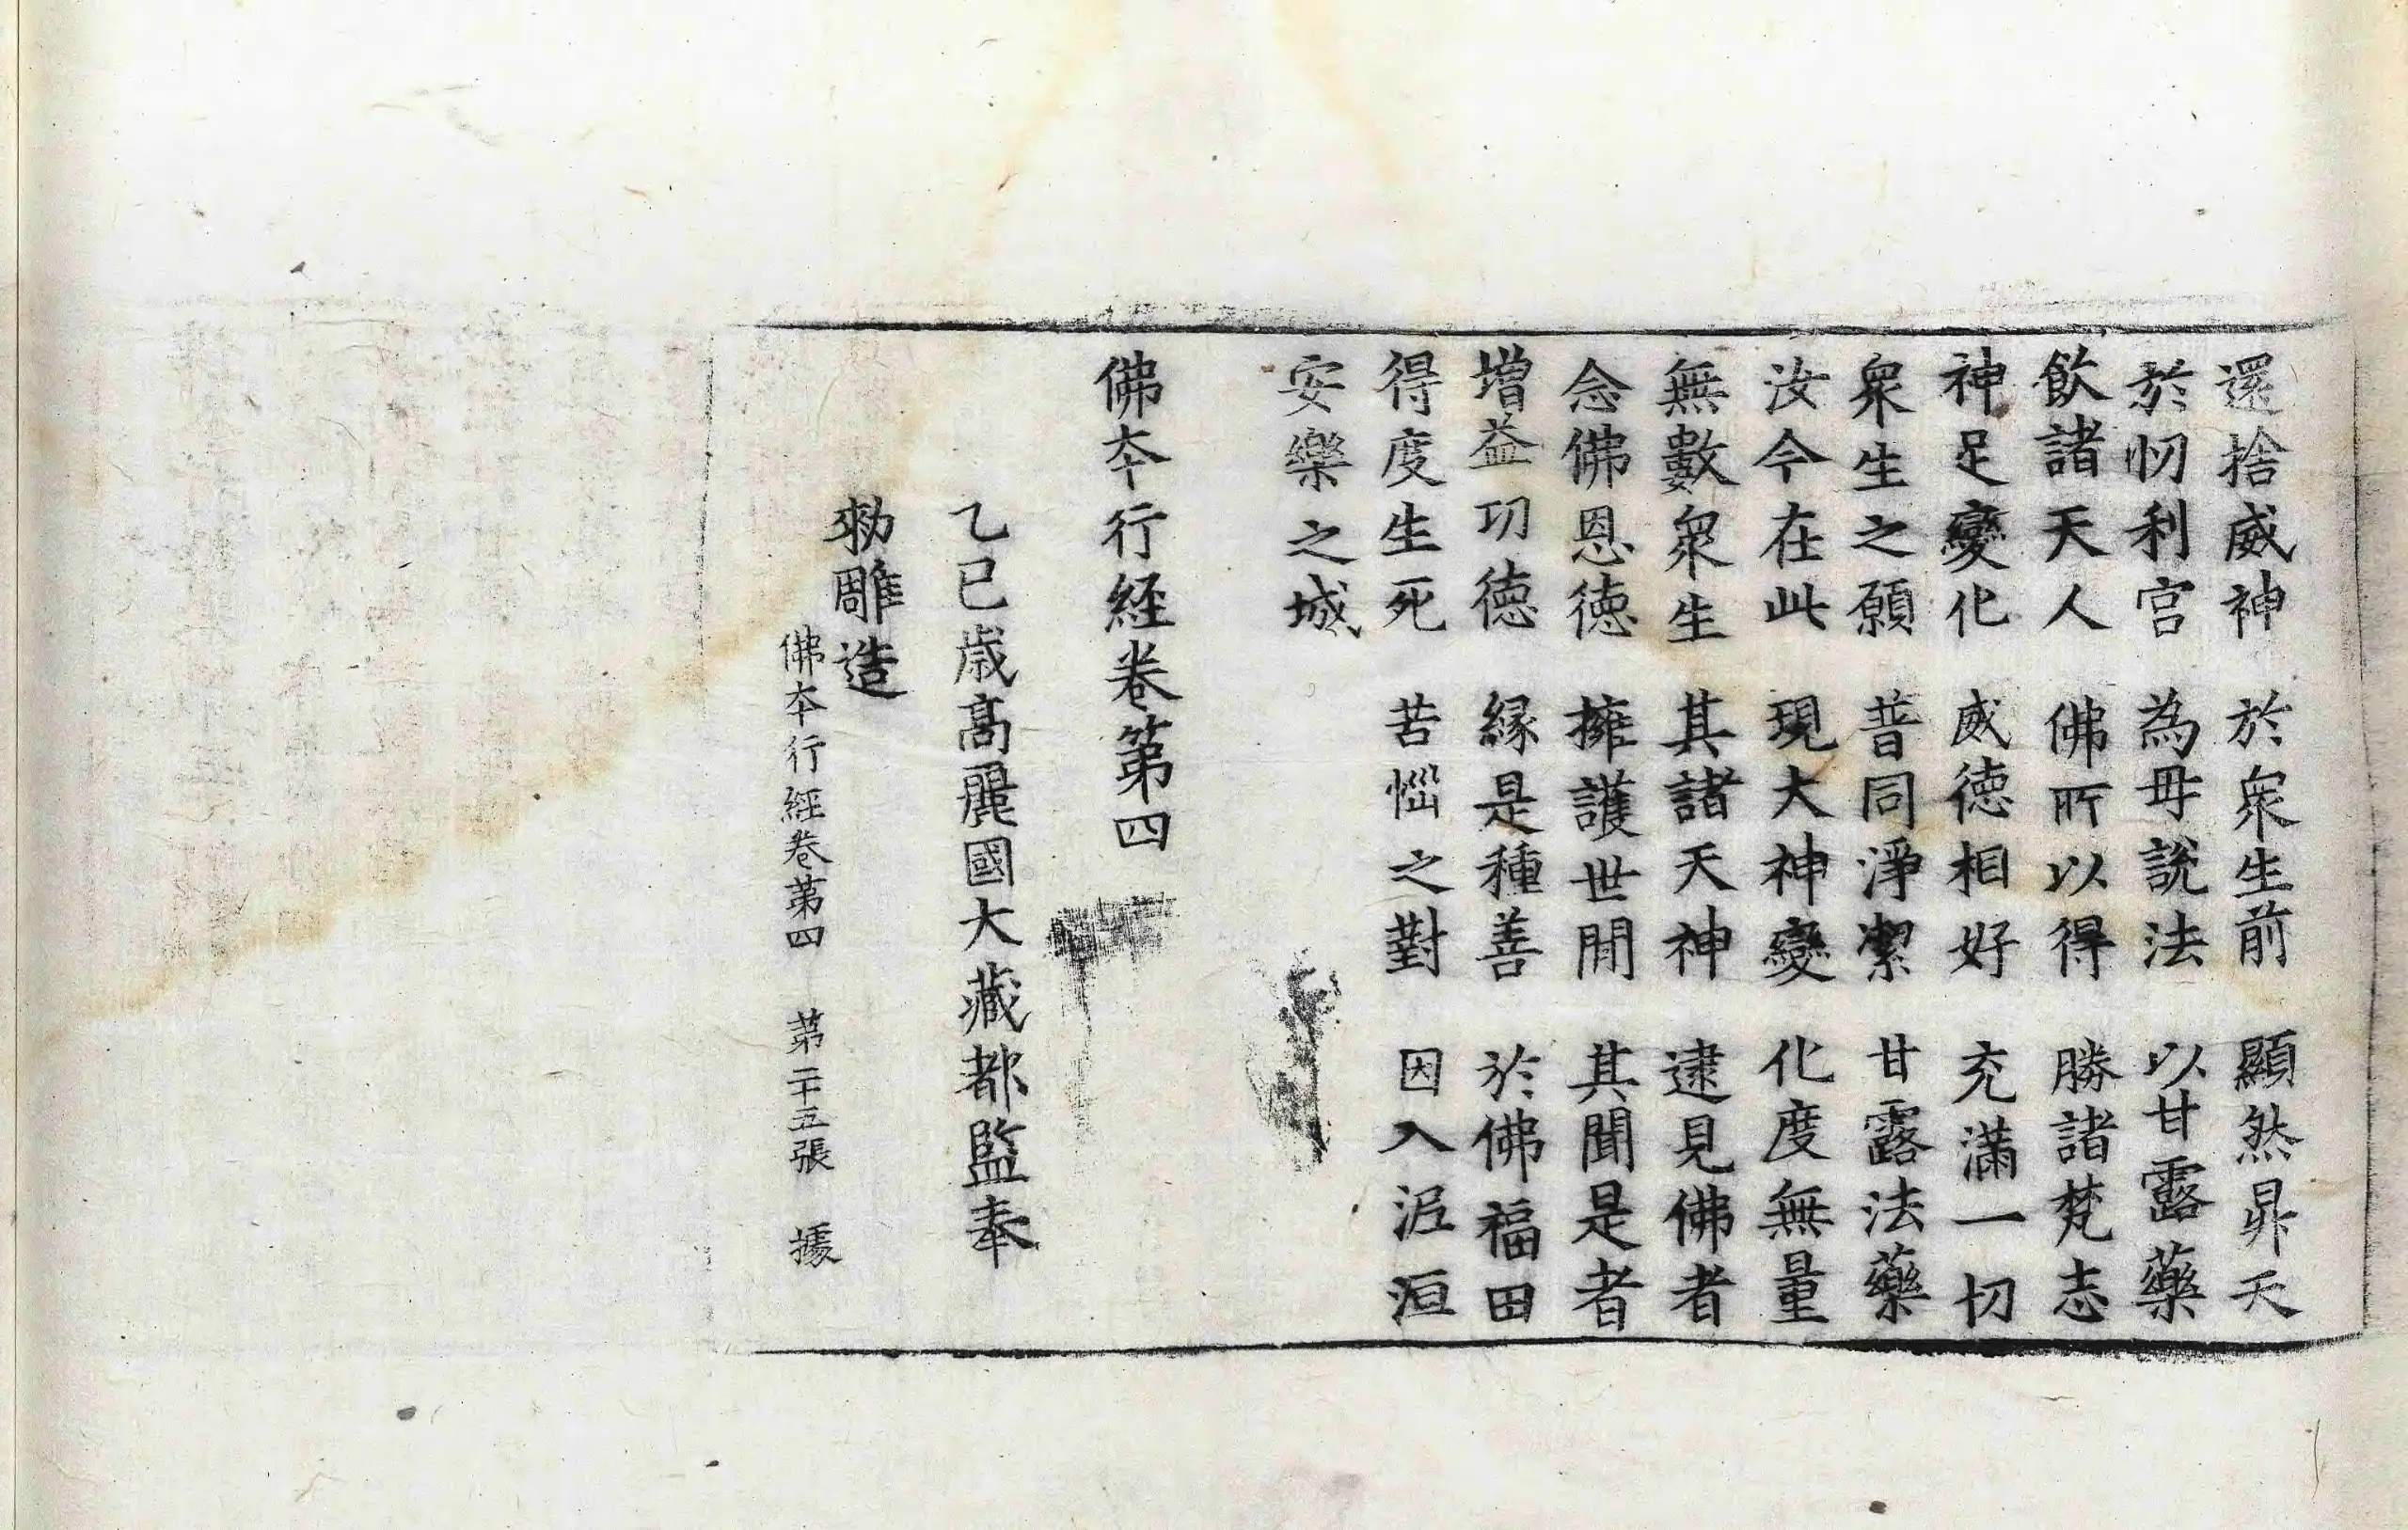 還捨威神 於衆生前 顯然昇天
於忉利宫 為母說法 以甘露藥
飲諸天人 佛所以得 勝諸梵志
神足變化 威德相好 充滿一切
衆生之願 普同淨潔 甘露法藥
汝今在此 現大神變 化度無量
無數衆生 其諸天神 逮見佛者
念佛恩德 擁護世間 其聞是者
增益功德 緣是種善 於佛福田
得度生死 苦惱之對 因入泥洹
安樂之城
佛本行経卷第四
乙巳歲高麗國大藏都監奉
勑雕造
佛本行經卷第四 第二十五張 據